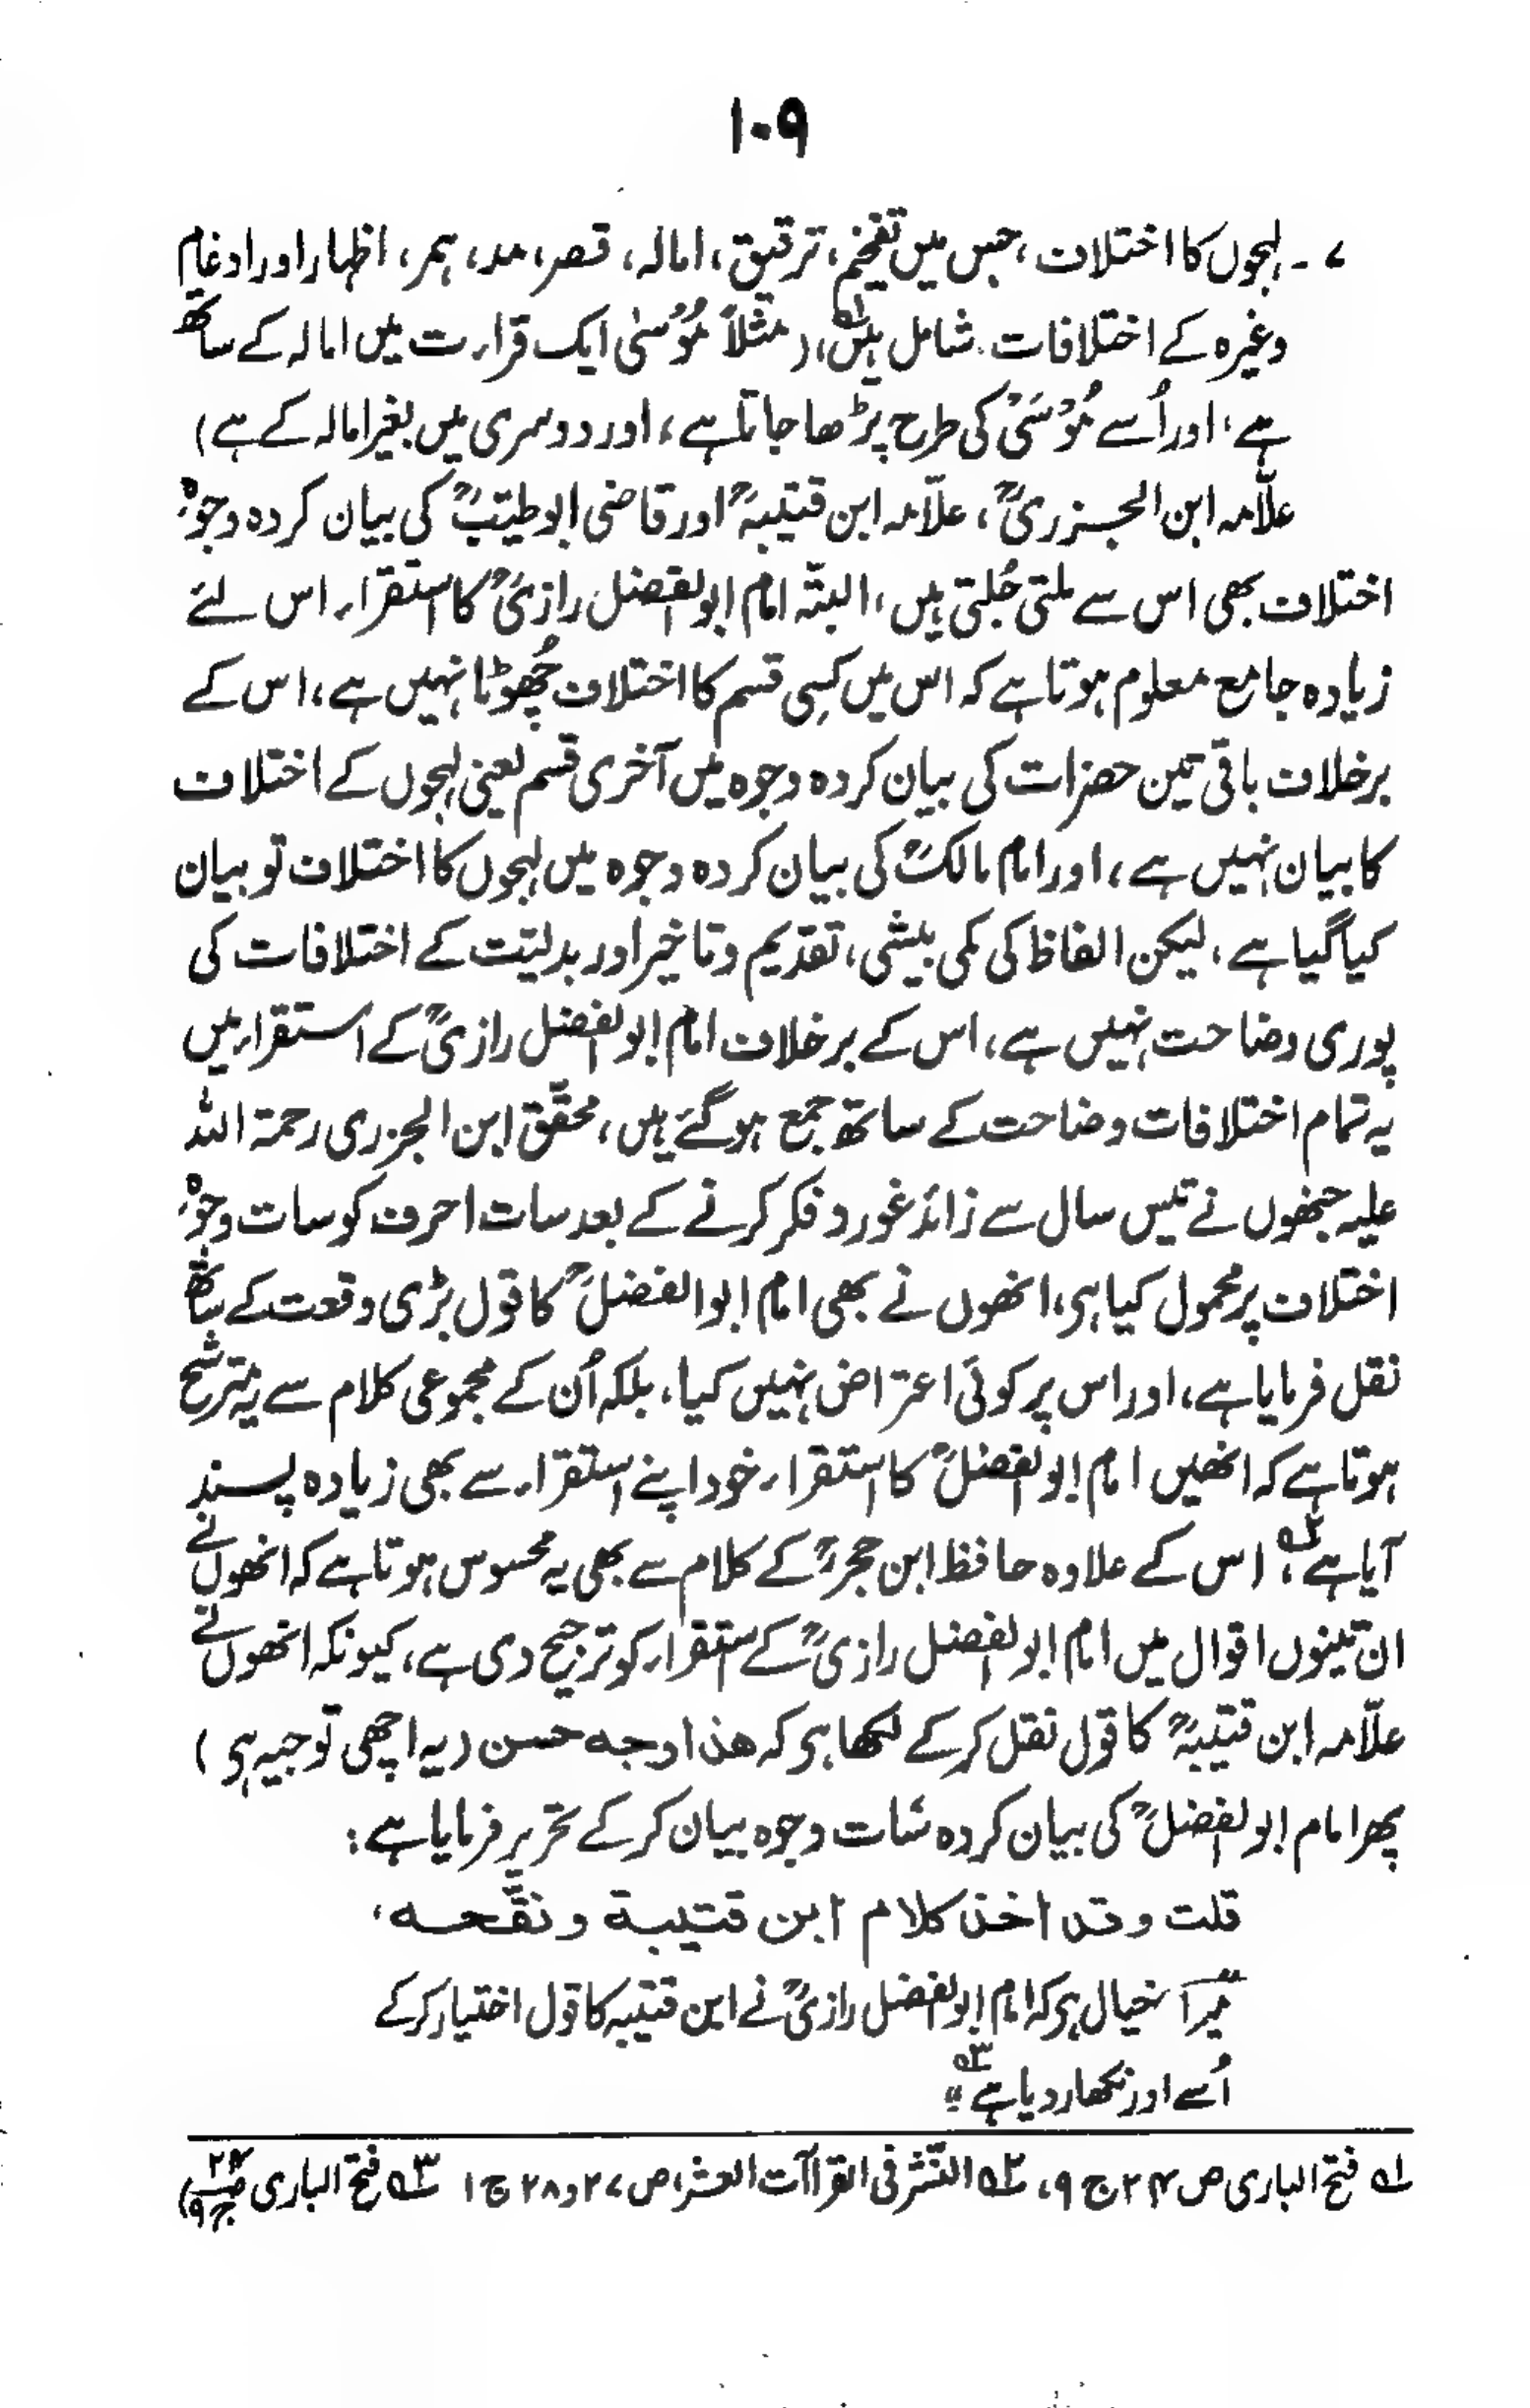 ۱۰۹
۷۔ لہجوں کا اختلاف، جس میں تفخیم، ترقیق، امالہ، قصر، مد، ہمز، اظہار اور ادغام
وغیرہ کے اختلافات شامل ہیں لہ، (مثلاً مُوْسٰی ایک قراءت میں امالہ کے ساتھ
ہے، اور اُسے مُوْسَیْ کی طرح پڑھا جاتا ہے، اور دوسری میں بغیر امالہ کے ہے)
علّامہ ابن الجزریؒ، علّامہ ابن قتیبہؒ اور قاضی ابو طیّبؒ کی بیان کردہ وجوہِ
اختلاف بھی اس سے ملتی جُلتی ہیں، البتّہ امام ابوالفضل رازیؒ کا استقراء اس لئے
زیادہ جامع معلوم ہوتا ہے کہ اس میں کسِی قسم کا اختلاف چُھوٹا نہیں ہے، اس کے
برخلاف باقی تین حضرات کی بیان کردہ وجوہ میں آخری قسم یعنی لہجوں کے اختلاف
کا بیان نہیں ہے، اور امام مالکؒ کی بیان کردہ وجوہ میں لہجوں کا اختلاف تو بیان
کیا گیا ہے، لیکن الفاظ کی کمی بیشی، تقدیم وتاخیر اور بدلیّت کے اختلافات کی
پوری وضاحت نہیں ہے، اس کے برخلاف امام ابوالفضل رازیؒ کے استقراء میں
یہ تمام اختلافات وضاحت کے ساتھ جمع ہوگئے ہیں، محقّق ابن الجزری رحمۃ اللہ
علیہ جنھوں نے تیس سال سے زائد غور و فکر کرنے کے بعد سات احرف کو سات وجوہِ
اختلاف پر محمول کیا ہی، انھوں نے بھی امام ابوالفضلؒ کا قول بڑی وقعت کے ساتھ
نقل فرمایا ہے، اور اس پر کوئی اعتراض نہیں کیا، بلکہ اُن کے مجموعی کلام سے یہ مترشح
ہوتا ہے کہ انھیں امام ابوالفضلؒ کا استقراء خود اپنے استقراء سے بھی زیادہ پسند
آیا ہے ۲ہ، اس کے علاوہ حافظ ابن حجرؒ کے کلام سے بھی یہ محسوس ہوتا ہے کہ انھوں نے
ان تینوں اقوال میں امام ابوالفضل رازیؒ کے ستقراء کو ترجیح دی ہے، کیونکہ انھوں نے
علّامہ ابن قتیبہؒ کا قول نقل کرکے لکھا ہی کہ ھذا وجہ حسن (یہ اچھی توجیہ ہی)
پھر امام ابوالفضلؒ کی بیان کردہ سات وجوہ بیان کرکے تحریر فرمایا ہے:
قلت وقد اخذ کلام ابن قتیبة ونقّحه،
میرا خیال ہی کہ امام ابوالفضل رازیؒ نے ابن قتیبہ کا قول اختیار کرکے
اُسے اور نکھار دیا ہے ۳ہ"
لہ فتح الباری ص ۲۴ ج ۹، ۲ہ النّشر فی القراآت العشر، ص ۲۷ و ۲۸ ج ۱ ۳ہ فتح الباری ص ۲۴ ج ۹)